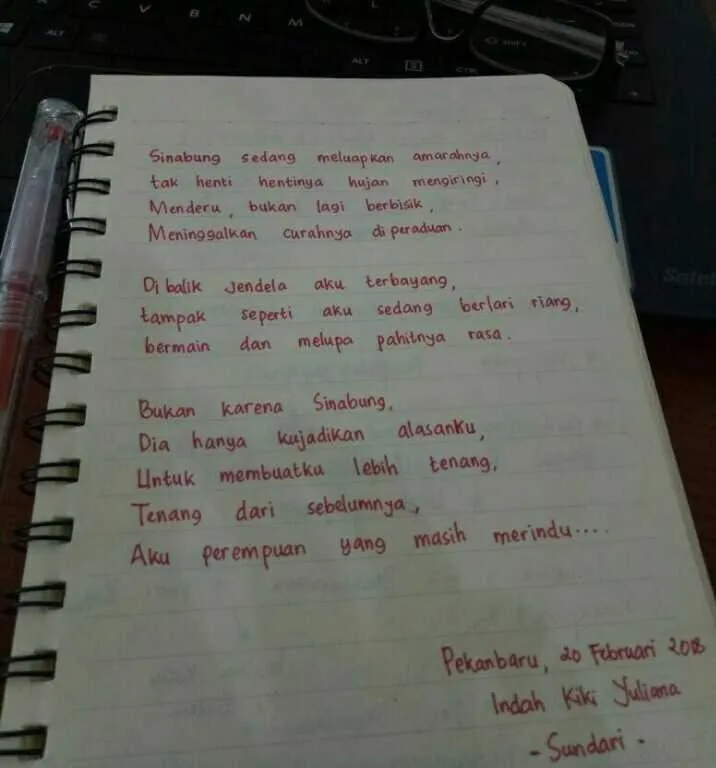 C V B N M L
ALT
ALT CTRL
Shift
Sinabung sedang meluapkan amarahnya,
tak henti hentinya hujan mengiringi,
Menderu, bukan lagi berbisik,
Meninggalkan curahnya di peraduan.
Di balik jendela aku terbayang,
tampak seperti aku sedang berlari riang,
bermain dan melupa pahitnya rasa.
Bukan karena Sinabung,
Dia hanya kujadikan alasanku,
Untuk membuatku lebih tenang,
Tenang dari sebelumnya,
Aku perempuan yang masih merindu....
Pekanbaru, 20 Februari 2018
Indah Kiki Yuliana
- Sundari -